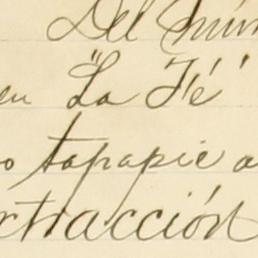 Del mún
en "La Fé"
o tapapie a
xtracción